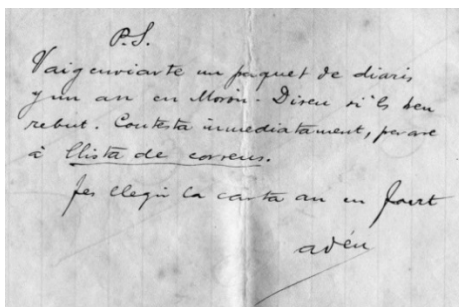 P.S.
Vaig enviarte un paquet de diaris
y un an en Morin. Diseu si'ls heu
rebut. Contesta inmediatament, per are
à Llista de correus.
Fes llegir la carta an en Foert
adéu